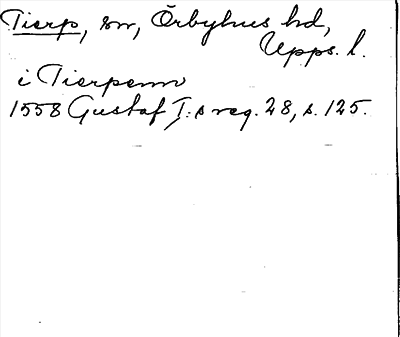 Tierp, sn, Örbyhus hd,
Upps. l.
i Tierpenn
1558 Gustaf I:s reg. 28, s. 125.